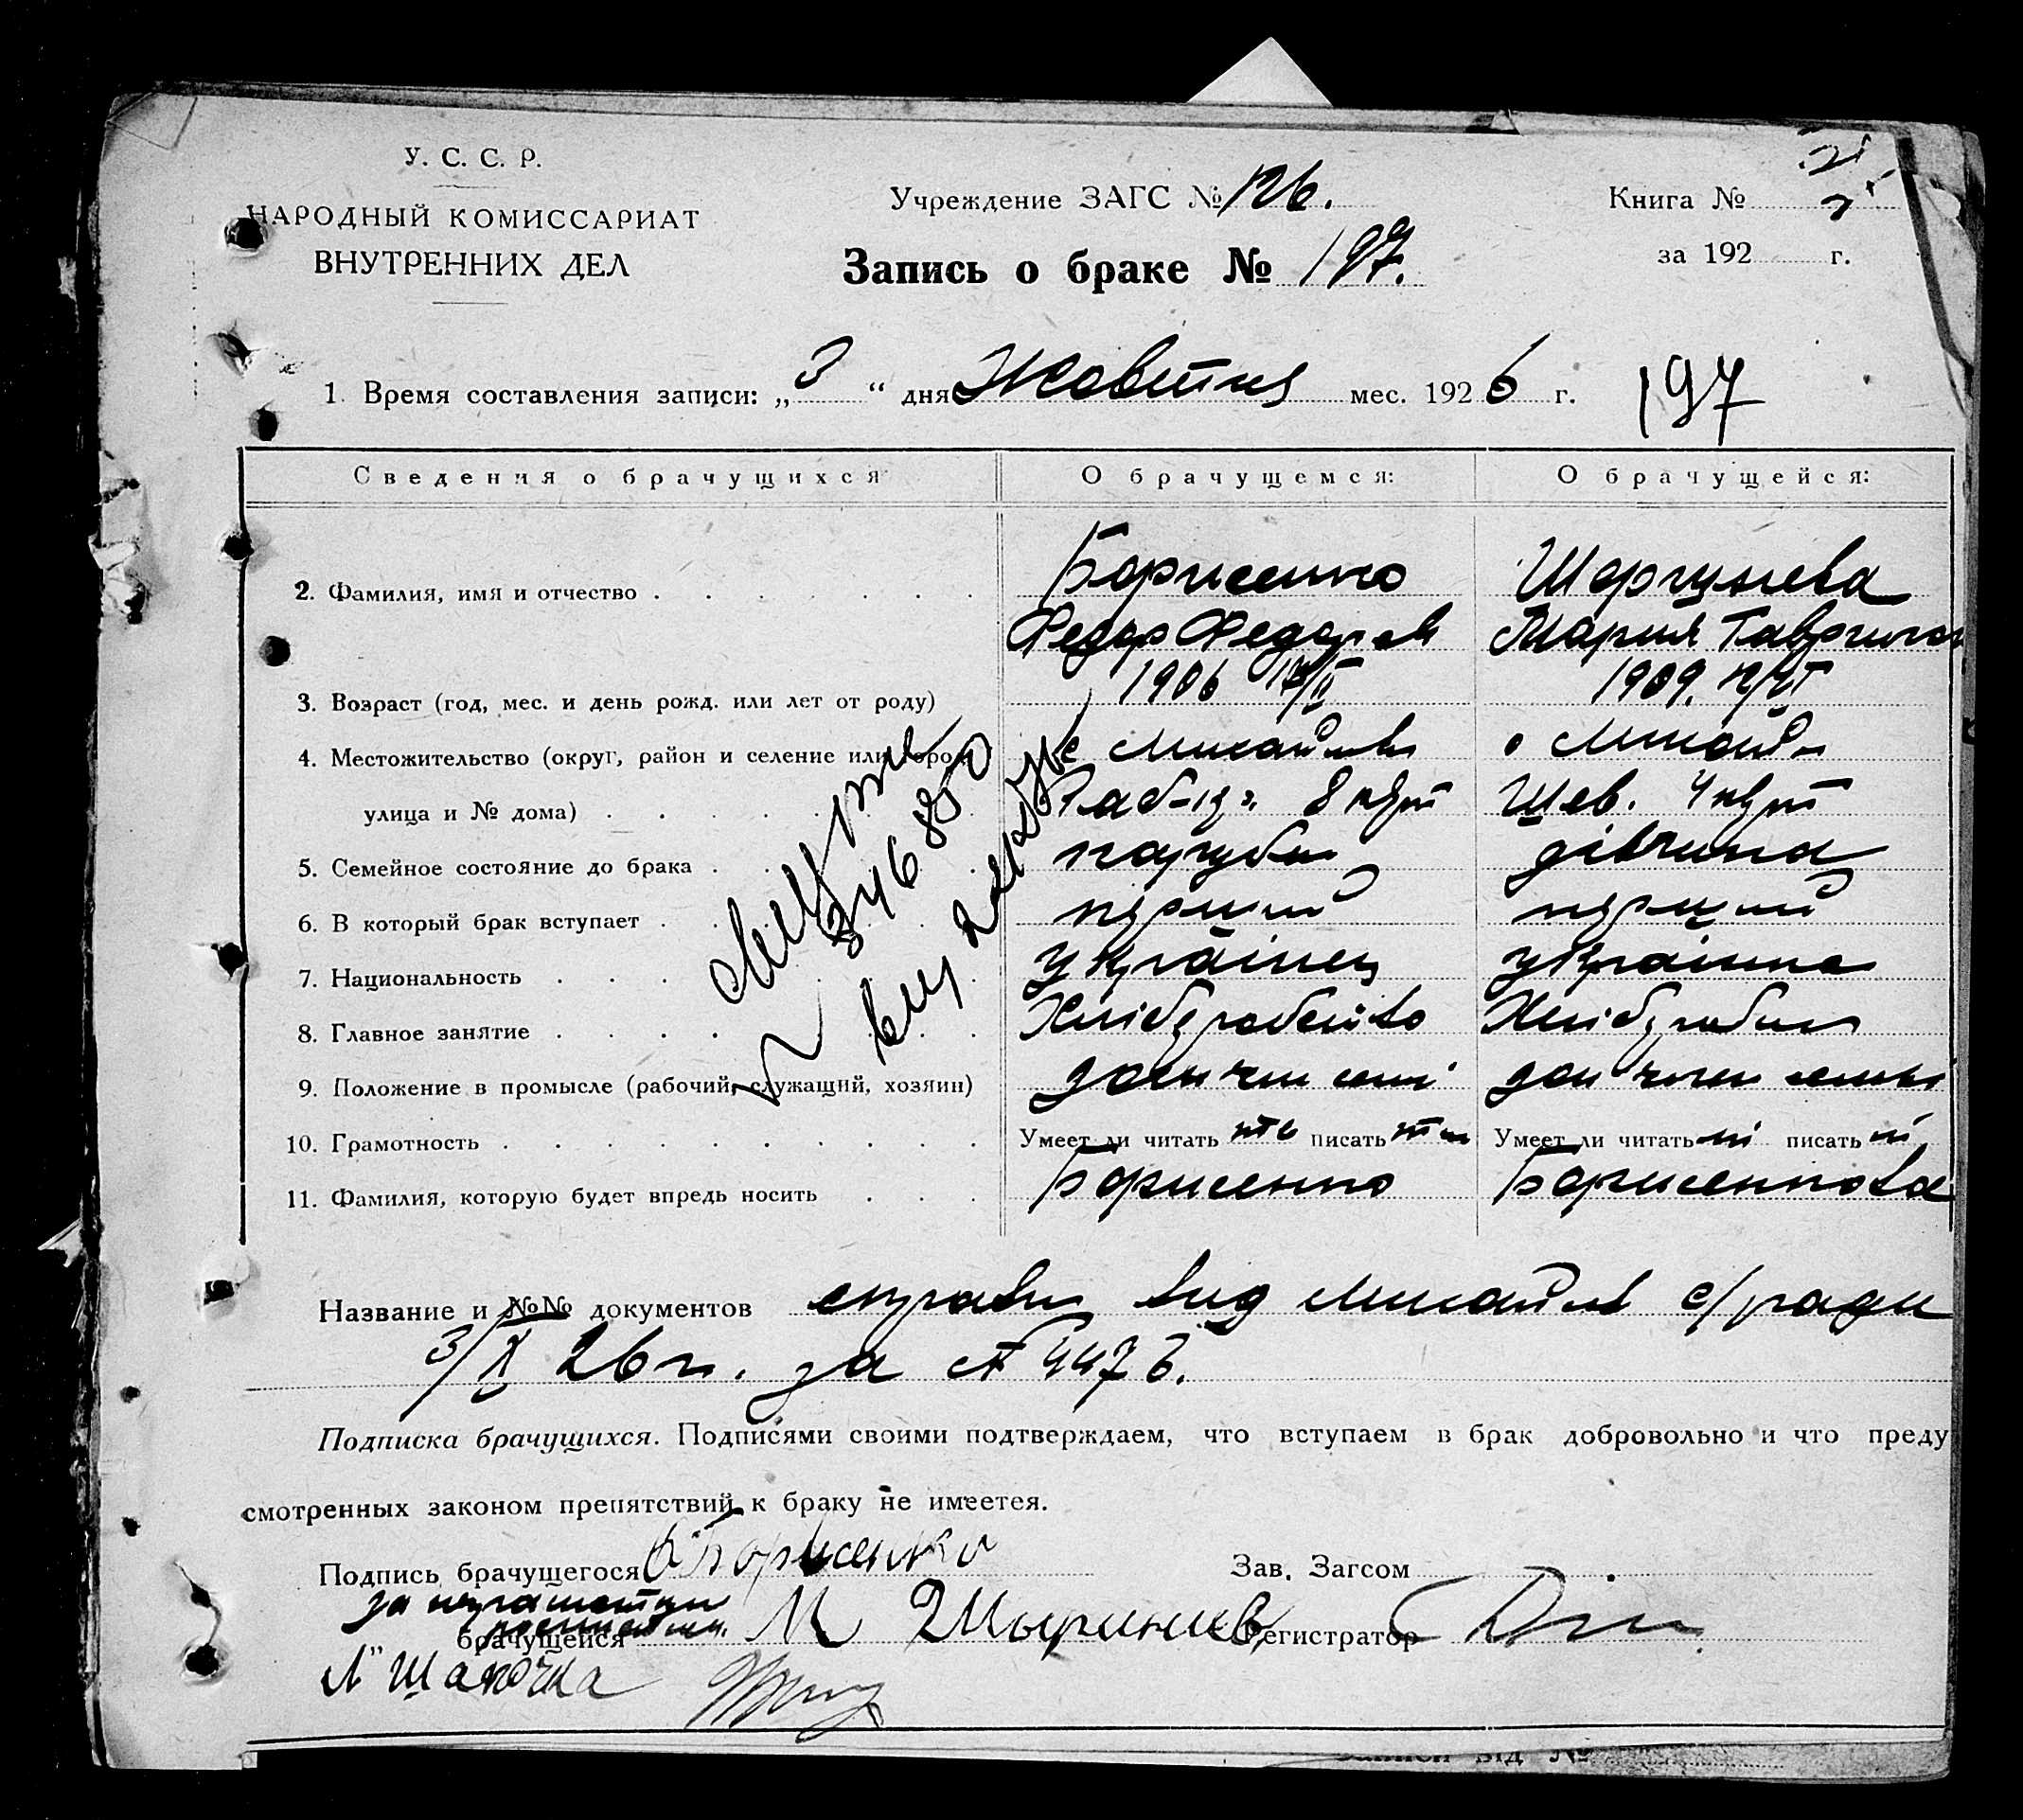 У. С. С. Р.
НАРОДНЫЙ КОМИССАРИАТ
ВНУТРЕННИХ ДЕЛ
Учреждение ЗАГС № 126.
Запись о браке № 197.
Книга №
за 192 г.
1. Время составления записи: „3“ дня Жовтня мес. 1926 г.
197
Сведения о брачущихся
О брачущемся:
О брачущейся:
2. Фамилия, имя и отчество
Борисенко
Федор Федоров
Шоргунева
Мария Гаврилов
3. Возраст (год, мес. и день рожд. или лет от роду)
1906 17/II
1909. 12/VI
4. Местожительство (округ, район и селение или город,
улица и № дома)
с Михайлов
8 кут
с Михайл
Шев. 4 кут
5. Семейное состояние до брака
парубок
дівчина
6. В который брак вступает
перший
перший
7. Национальность
українец
українка
8. Главное занятие
Хлібробство
Хлібробст
9. Положение в промысле (рабочий, служащий, хозяин)
член сімї
член
10. Грамотность
Умеет ли читать писать
Умеет ли читать ні писать ні
11. Фамилия, которую будет впредь носить
Борисенко
Борисенкова
346850
Название и №№ документов справки вид Михайлов с/ради
3/X 26 г. за № 4476.
Подписка брачущихся. Подписями своими подтверждаем, что вступаем в брак добровольно и что преду
смотренных законом препятствий к браку не имеется.
Подпись брачущегося Борисенко
Зав. Загсом
за неграмотну
брачущейся М
Регистратор